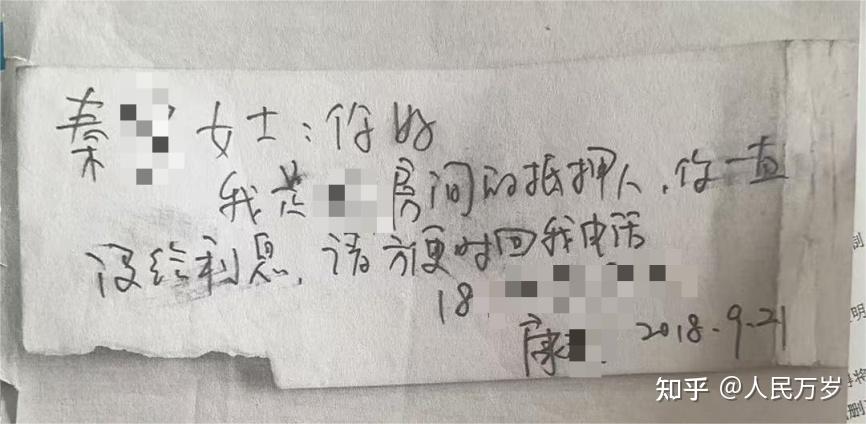 秦 女士：你好
我是 房间的抵押人，你一直
没给利息，请方便时回我电话
18
康 2018.9.21
知乎 @人民万岁